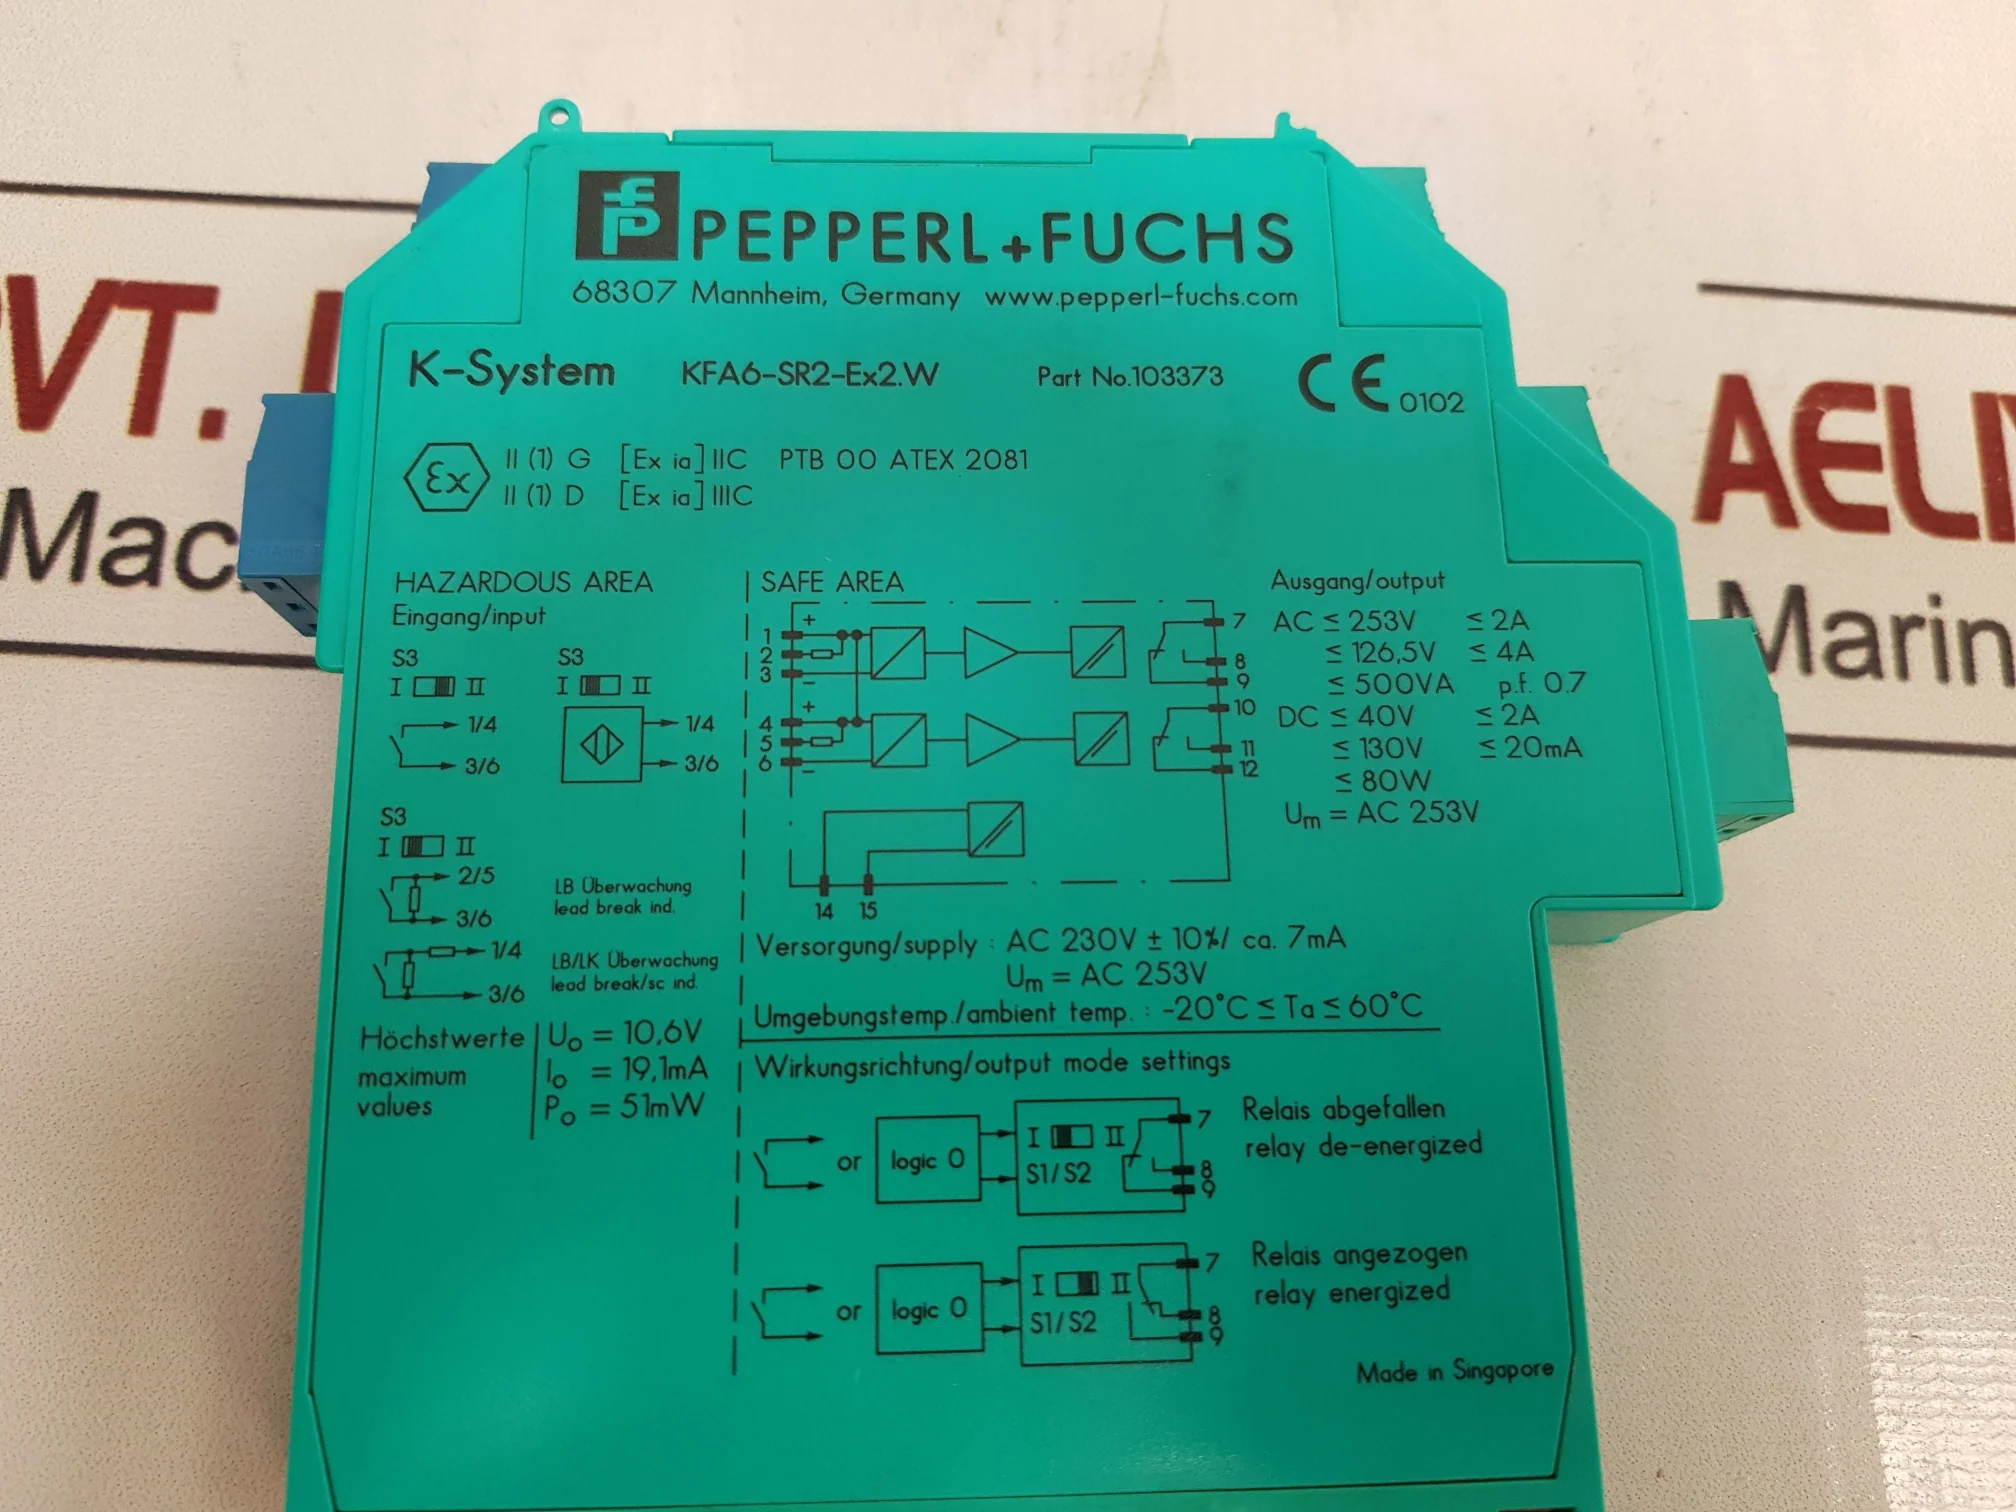 PEPPERL+FUCHS
68307 Mannheim, Germany www.pepperl-fuchs.com
K-System KFA6-SR2-Ex2.W Part No.103373 CE 0102
Ex II (1) G [Ex ia] IIC PTB 00 ATEX 2081
II (1) D [Ex ia] IIIC
HAZARDOUS AREA
Eingang/input
S3 S3
I II I II
1/4 1/4
3/6 3/6
S3
I II
2/5
3/6
LB Überwachung
lead break ind.
1/4
3/6
LB/LK Überwachung
lead break/sc ind.
Höchstwerte
maximum
values
Uo = 10,6V
Io = 19,1mA
Po = 51mW
SAFE AREA
+
1
2
3
−
+
4
5
6
−
7
8
9
10
11
12
14 15
Ausgang/output
AC ≤ 253V ≤ 2A
≤ 126,5V ≤ 4A
≤ 500VA p.f. 0.7
DC ≤ 40V ≤ 2A
≤ 130V ≤ 20mA
≤ 80W
Um = AC 253V
Versorgung/supply : AC 230V ± 10%/ ca. 7mA
Um = AC 253V
Umgebungstemp./ambient temp. : -20°C ≤ Ta ≤ 60°C
Wirkungsrichtung/output mode settings
or logic 0 I II S1/S2 7 8 9
Relais abgefallen
relay de-energized
or logic 0 I II S1/S2 7 8 9
Relais angezogen
relay energized
Made in Singapore
PVT.
Mac
AELI
Marin